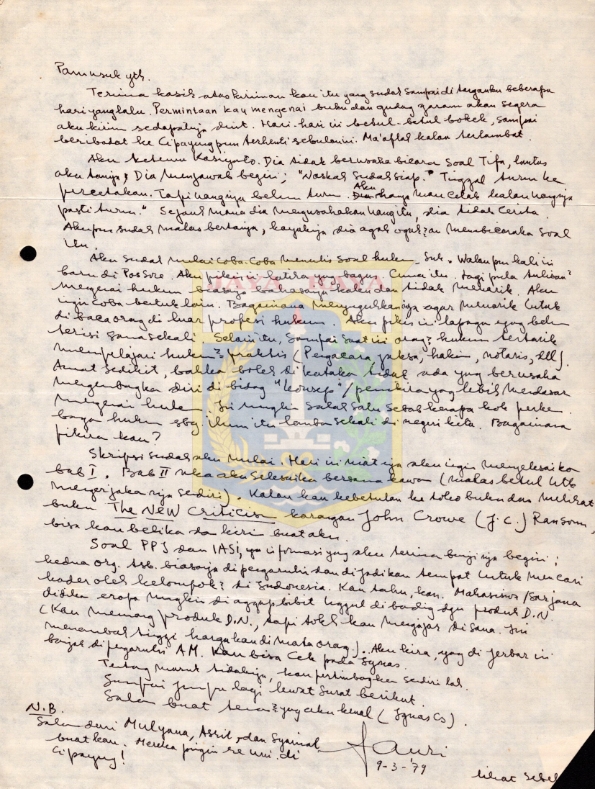 Pamusuk yth.
Terima kasih atas kiriman kau itu yang sudah sampai di tanganku beberapa
hari yang lalu. Permintaan kau mengenai buku dan gudang garam akan segera
aku kirim sedapatnya duit. Hari-hari ini betul-betul bokek, sampai
beribadat ke Cipayung pun terhenti sebulan ini. Ma'aflah kalau terlambat.
Aku ketemu Kasiyanto. Dia tidak berusaha bicara soal Tifa, lantas
aku tanya; Dia menjawab begini; "Naskah sudah siap." Tinggal turun ke
percetakan. Tapi uangnya belum turun. Aku hanya mau cetak kalau uangnya
pasti turun." Sejauh mana dia mengusahakan uang itu, dia tidak cerita.
Akupun sudah malas bertanya, kayaknya dia agak ogah2an membicarakan soal
itu.
Aku sudah mulai coba-coba menulis soal hukum Sub. Walaupun kali ini
baru di Pos Sore. Aku pikir ini katanya bagus. Cuma itu, lagi pula tulisan2
mengenai hukum bahasanya dan tidak menarik. Aku
ingin coba bentuk lain. Bagaimana menyuguhkannya agar menarik untuk
dibaca orang di luar profesi hukum. Aku pikir ini lapangan yang belum
terisi sama sekali. Selain itu, sampai saat ini orang2 hukum tertarik
mempelajari hukum2 praktis (Pengacara, jaksa, hakim, notaris, dll).
Amat sedikit, bahkan boleh dikatakan tidak ada yang berusaha
mengembangkan diri di bidang "konsep"/pemikiran yang lebih mendasar
mengenai hukum. Ini mungkin salah satu sebab kenapa kok perkem-
bangan hukum sbg. ilmu itu lamban sekali di negeri kita. Bagaimana
pikiran kau?
Skripsi sudah aku mulai. Hari ini niatnya aku ingin menyelesaikan
bab I. Bab II aku selesaikan bersama kawan (malas betul utk
mengerjakannya sendiri). Kalau kau kebetulan ke toko buku dan melihat
buku The New Criticism karangan John Crowe (J.C.) Ransom,
bisa kau belikan dan kirim buat aku.
Soal PPI dan IASI, informasi yang aku terima bunyinya begini;
kedua org. tsb. biasanya di pengaruhi dan dijadikan tempat untuk mencari
kader oleh kelompok2 di Indonesia. Kau tahu kan. Mahasiswa/Sarjana
didikan eropa mungkin dianggap bibit unggul dibanding dgn produk D.N
(Kau memang produk D.N., tapi toh kau mengajar di sana. Ini
menambah tinggi harga kau di mata orang). Aku kira, yang di Jerbar ini
banyak di pengaruhi A.M. Kau bisa cek pada Ignas.
Tentang murut tidaknya, kau pertimbangkan sendiri lah.
Sampai jumpa lagi lewat surat berikut.
Salam buat teman2 yang aku kenal (Ignas Cs).
N.B.
Salam dari Mulyana, Asril, dan Syamsul
buat kau. Mereka pingin reuni di
Cipayung!
Fauzi
9-3-'79
lihat sebel
JAYA RAYA